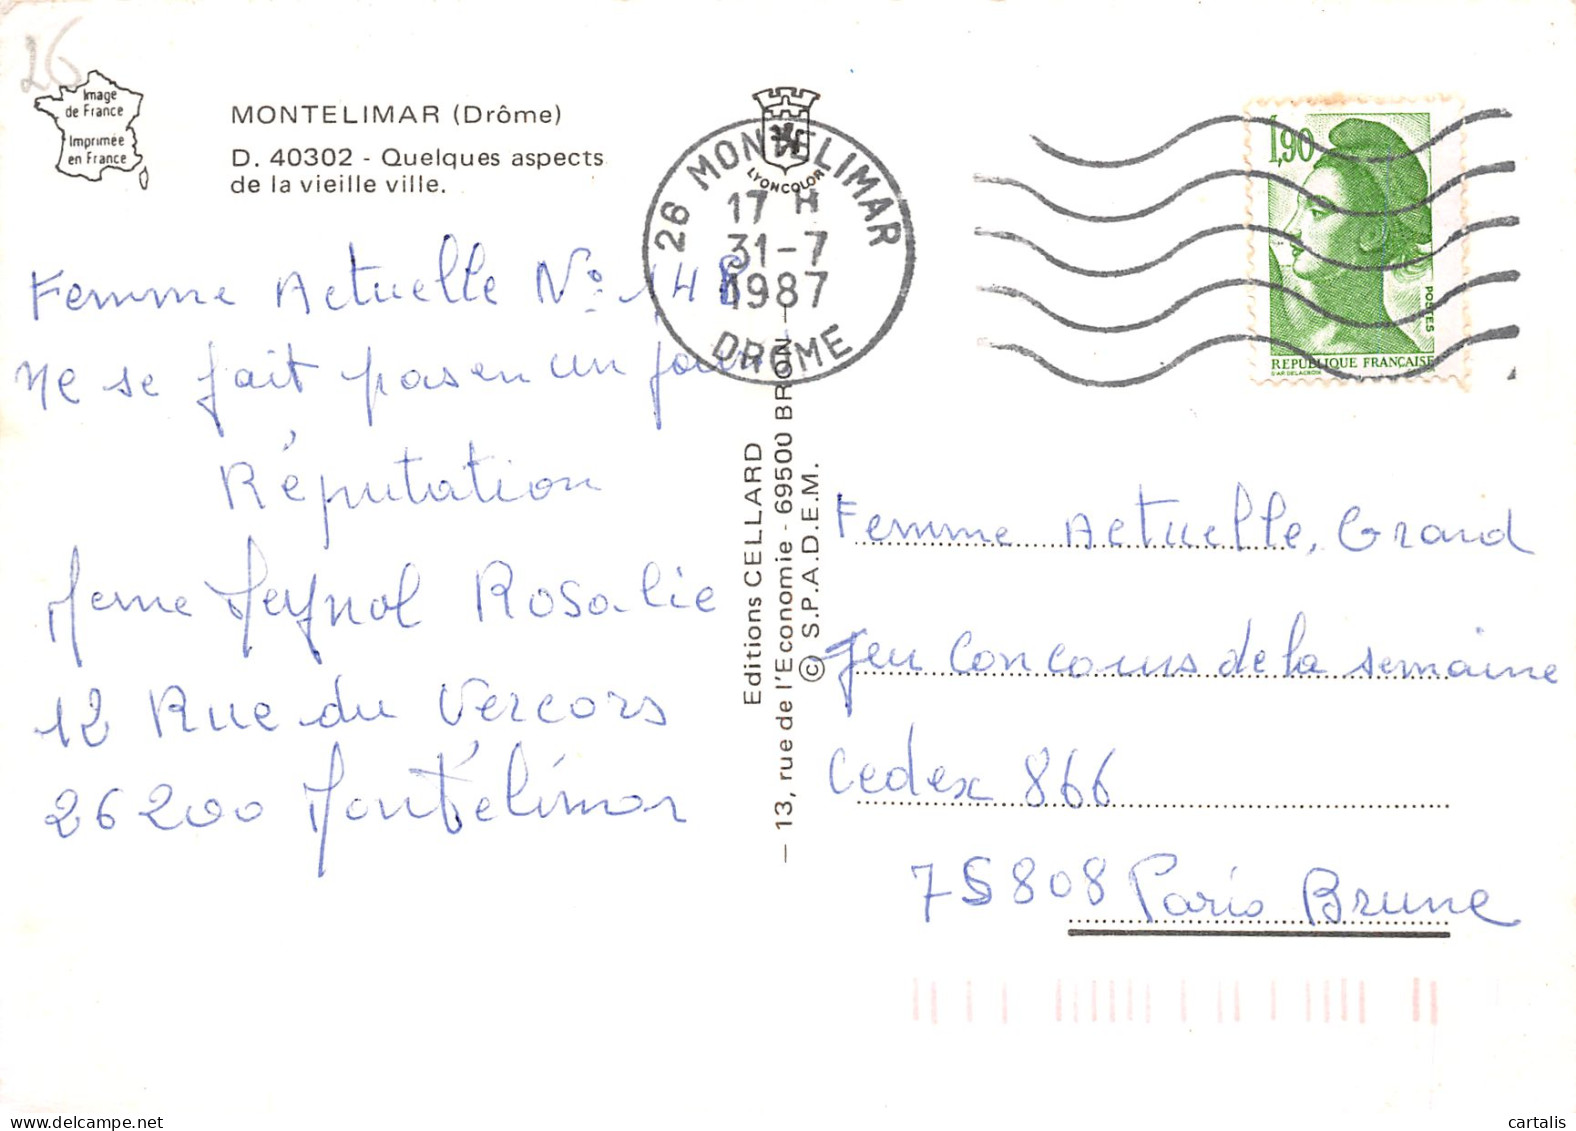 26
Image
de France
Imprimée
en France
MONTELIMAR (Drôme)
D. 40302 - Quelques aspects
de la vieille ville.
Femme Actuelle No 148
Ne se fait pas en un jour
Réputation
Meme Meynol Rosalie
12 Rue du Vercors
26200 Montélimar
LYONCOLOR
26 MONTELIMAR
17 H
31-7
1987
DROME
Editions CELLARD
— 13, rue de l'Economie - 69500 BRON —
© S.P.A.D.E.M.
1,90
POSTES
REPUBLIQUE FRANÇAISE
D'AP. DELACROIX
Femme Actuelle, Grand
Jeu Concours de la semaine
Cedex 866
75808 Paris Brune
delcampe.net
cartalis